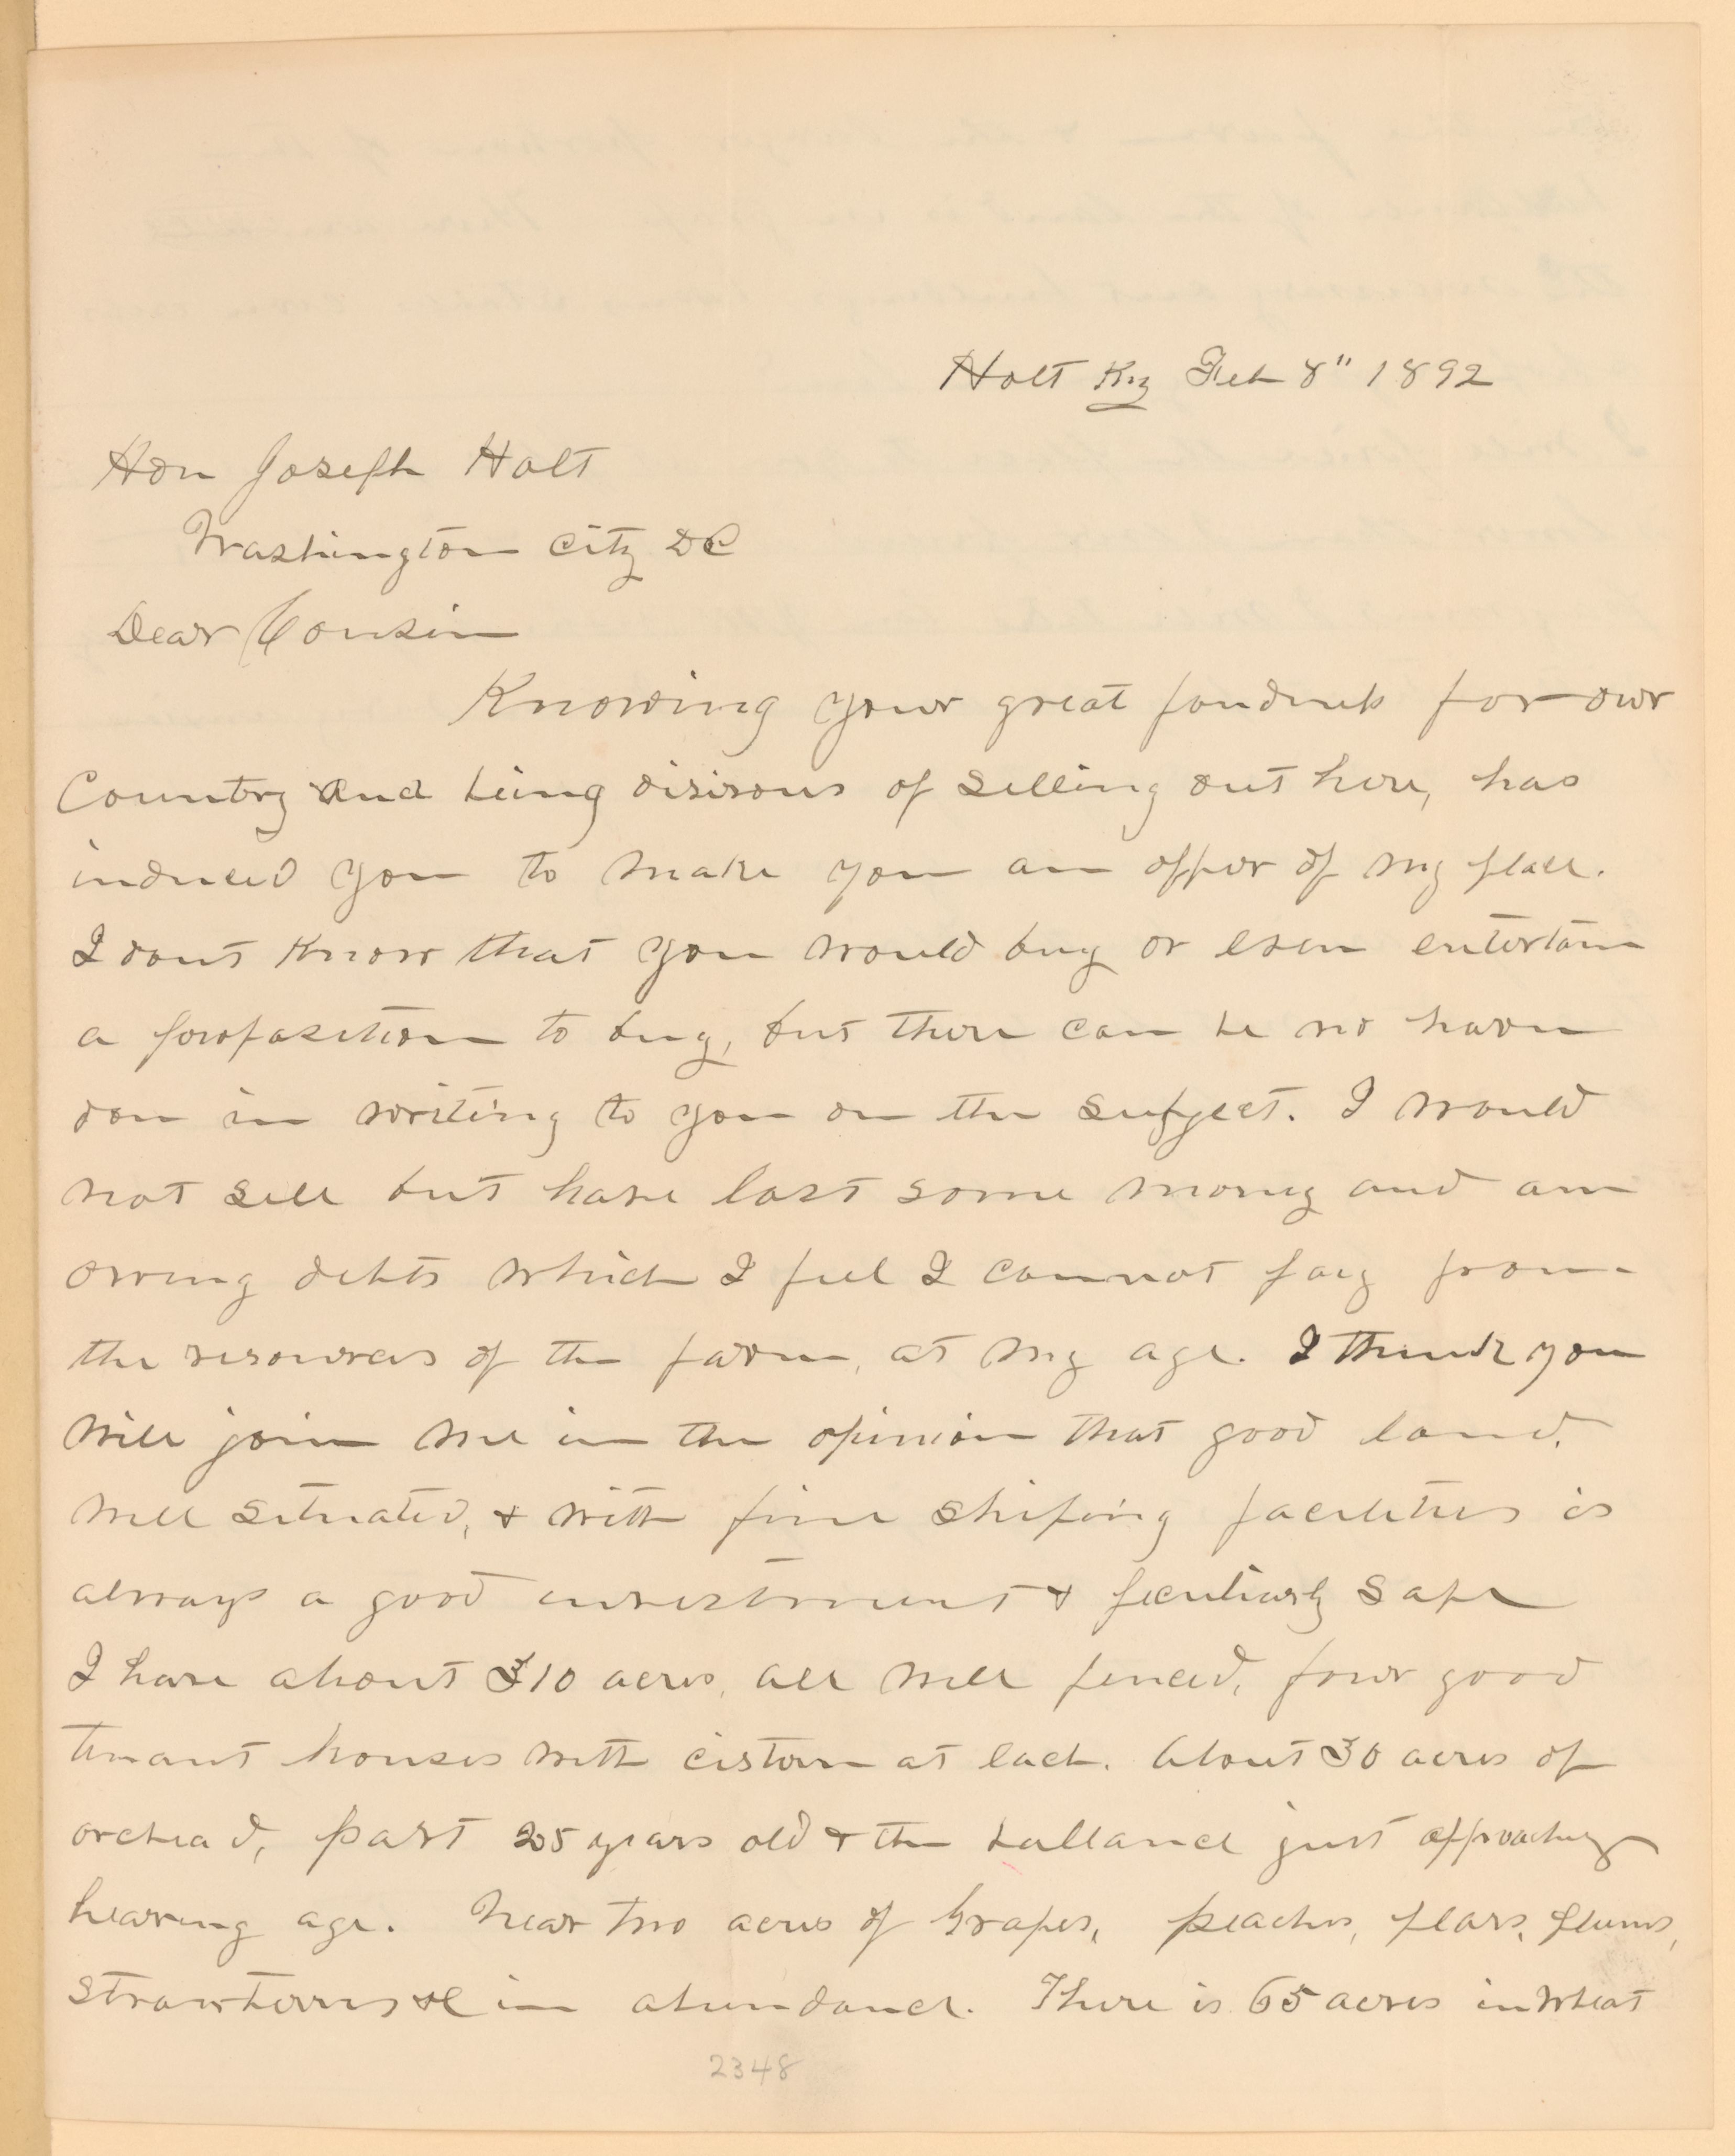 Holt Ky Feb 8" 1892
Hon Joseph Holt
Washington City DC
Dear Cousin
Knowing your great fondness for our
Country and being disirous of selling out here, has
induced you to make you an offer of my place.
I dont know that you would buy or even entertain
a proposition to buy, but there can be no harm
don in writing to you on the subject. I would
not sell but have lost some money and am
owing debts which I feel I cannot pay from
the resources of the farm, at my age. I think you
will join me in the opinion that good land,
well situated, & with fine shiping facilities is
always a good investment & peculiarly safe
I have about 310 acres, all well fenced, four good
tenant houses with cistern at each. About 30 acres of
orchad, part 25 years old & the ballance just approaching
bearing age. Near two acres of Grapes, peaches, pears, plums,
strawberries &c in abundance. There is 65 acres in wheat
2348